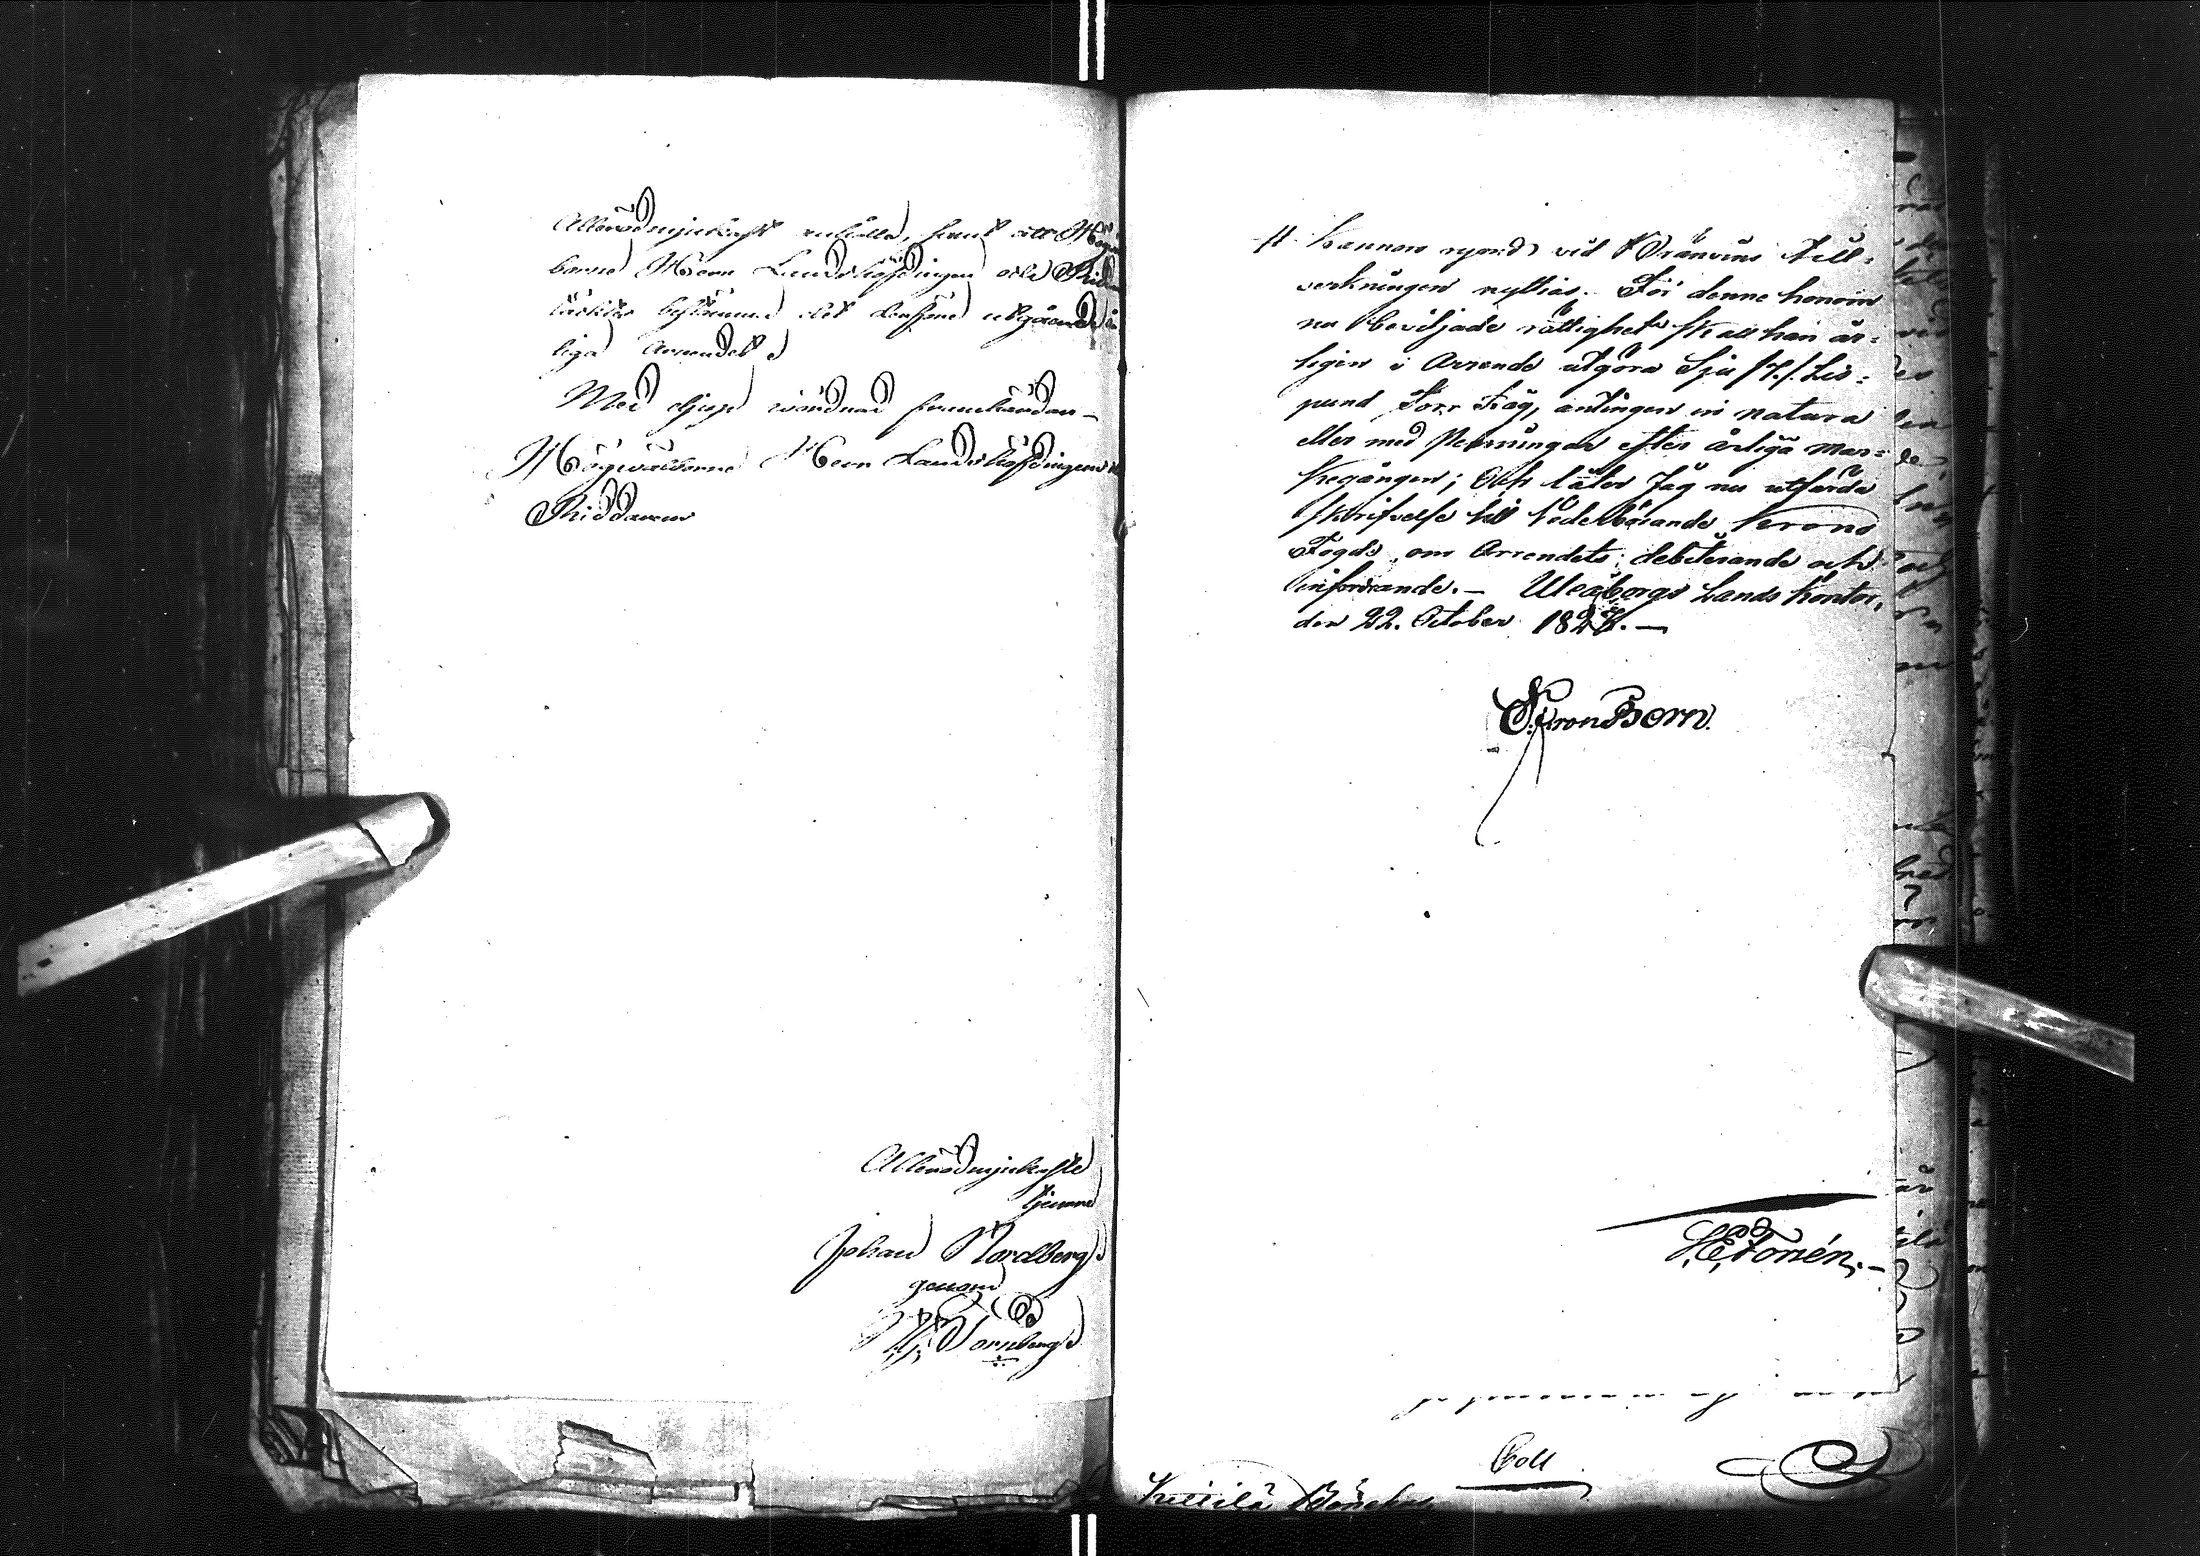 Allerödmjukast anhålla, samt att Högwäl
borne Herr Landshöfdingen och Ridd
täcktes bestämma det derföre utgående år
liga Arrendet.
Med djup wördnad framhärdar
Högwälborne Herr Landshöfdingens
Riddarens
Allerödmjukaste
tjenare
Johan Nordberg
genom
Tornberg
kannors rymd vid Bränvins Till-
verkningen nyttias. För denne honom
nu beviljade rättighet skall han år-
ligen i Arrende utgöra Sju /7./. Lis-
pund Torr Råg, antingen in natura
eller med Penningar efter årliga Mar-
kegången; Och låter Jag nu utfärda
skrifvelse till Vederbörande Krono
Fogde om Arrendets debiterande och
infordrande. — Uleåborgs Lands Kontor,
den 22. October 182. —
S. F. von Born.
H. E. Tornén. —
Coll
Kittilä